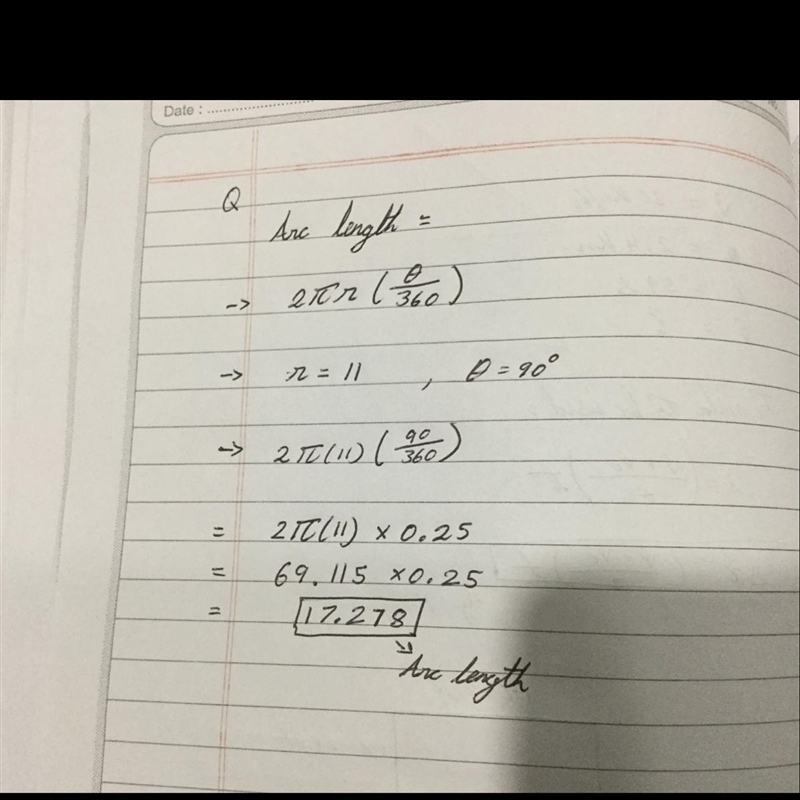 Date : ....................
Q
Arc length =
→ 2πr (θ/360)
→ r = 11 , θ = 90°
→ 2π(11) (90/360)
= 2π(11) × 0.25
= 69.115 × 0.25
= 17.278
↘
Arc length